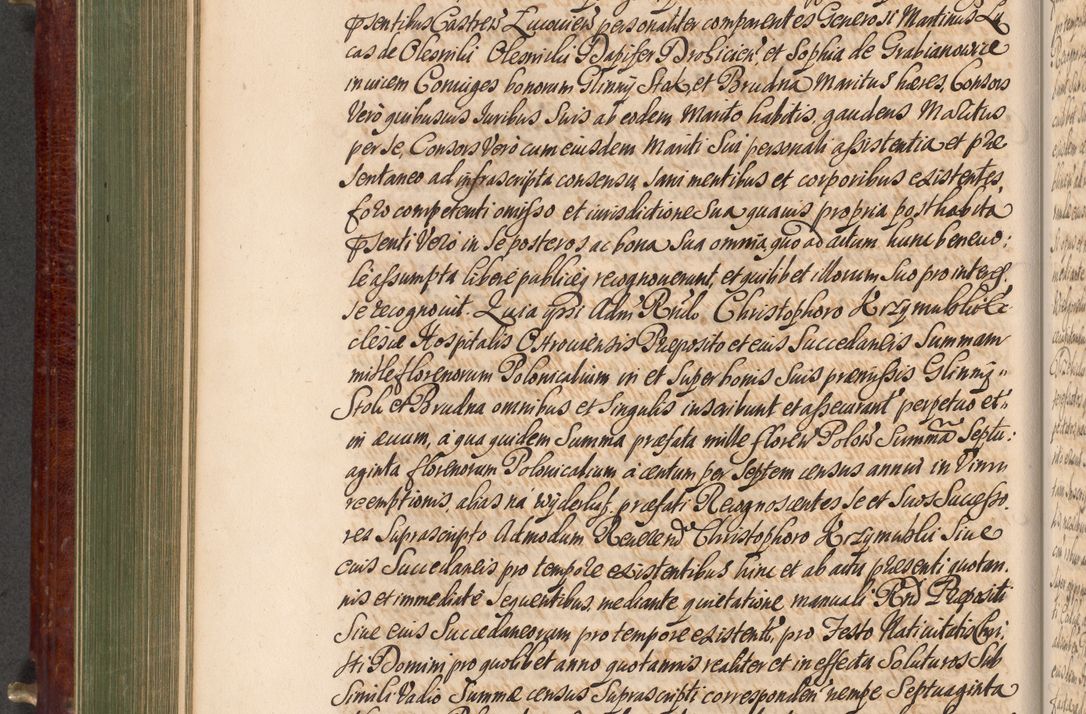 Psentibus Castren̄ Luoviēn personaliter comparentes Generosi Martinus Lu
cas de Olesnicki Olesnicki Dapifer Drohicien̄ et Sophia de Grabianowice
in uicem Coniuges bonorum Glinny Stok et Brudna Maritus hæres, Consors
Vero quibusuis Juribus Suis ab eodem Marito habitis, gaudens Maritus
per se, Consors Vero cum eiusdem Mariti Sui personali assistentia et præ
sentaneo ad infrascripta consensu, sani mentibus et corporibus existentes,
foro competenti omisso et iurisdictione Sua quauis propria posthabita
Psenti Vero in se posteros ac bona Sua omnia, quo ad actum hunc beneuo:
lè assumpta liberè publicèq recognouerunt, et quilibet illorum Suo pro interes
se recognouit. Quia ipsi Adm̄ Rndo Christophoro Krzymuski Ec
clesiæ Hospitalis Ostrouiensis Præposito et eius Succedaneis Summam
mille florenorum Polonicalium in et Super bonis Suis præmissis Glinny
Stok et Brudna omnibus et singulis inscribunt et assecurant perpetuo et
in æuum, a qua quidem Summa præfata mille floren̄ Polon̄ Summam Septu:
aginta florenorum Polonicalium à centum per Septem census annui in Vim
reemptionis, alias na wyderkaf præfati Recognoscentes se et Suos Successo
res Suprascripto Admodum Reuerendo Christophoro Krzymuski Siue
eius Succedaneis pro tempore existentibus hinc et ab actu præsenti quotan
nis et immediatè Sequentibus, mediante quietatione manuali Rnd Præpositi
Siue eius Succedaneorum pro tempore existenti, pro Festo Natiuitatis Chri
sti Domini pro quolibet anno quotannis realiter et in effectu Soluturos Sub
Simili Vadio Summæ census Suprascripti corresponden̄ nempe Septuaginta